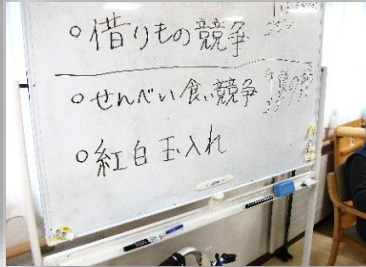 ○借りもの競争
○せんべい食い競争
○紅白玉入れ